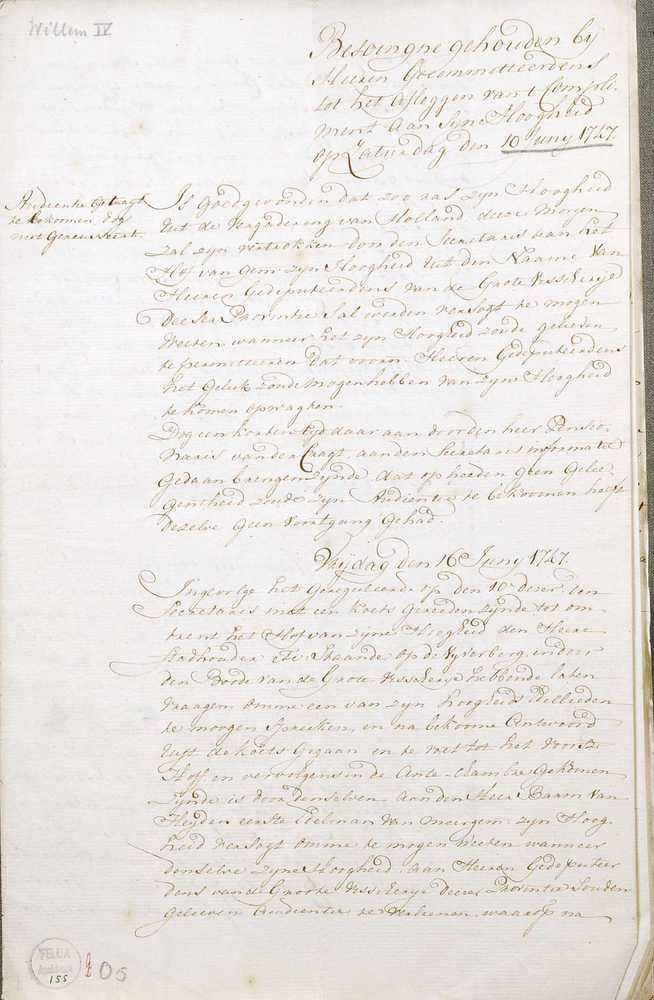 Willem IV
Besoingne gehouden bij
Heeren Gecommitteerdens
tot het afleggen van 't Compli-
ment aan Sijne Hoogheid
op Zaturdag den 10 Juny 1747.
Audientie
te bekomen, dog
niet
Is goedgevonden dat zoo ras zijn Hoogheid
uit de Vergadering van Holland deese Morgen
zal zijn vertrokken door den Secretaris aan het
Hof van gem. zijn Hoogheid uit den Naame van
Heeren Gedeputeerdens van de Groote Visscherije
Deeser Provintie sal werden versogt te mogen
weeten wanneer het zijn Hoogheid zoude gelieven
te permitteeren dat voorn. Heeren Gedeputeerdens
het geluk zoude mogen hebben van zijne Hoogheid
te komen opwagten.
Dog een korten tijd daar aan door den heer Pensio-
naris van der aan den Secretaris informatie
gedaan brengen zijnde, dat op heeden geen gelee-
gentheid zoude zijn Audientie te bekoomen heeft
dezelve geen voortgang gehad.
Vrijdag den 16 Juny 1747.
Ingevolge het Geresolveerde op den 10 deser den
Secretaris met een koets gereeden zijnde tot om-
trent het Hof van zijne Hoogheid den Heere
Stadhouder &c. staande op de Vijverberg, en door
den Bode van de Groote Visscherije hebbende laten
vraagen omme een van zijn hoogheids Edellieden
te moogen spreeken, en na bekoome Antwoord
uijt de koets gegaan en te voet tot het voorsz.
Hoff, en vervolgens in de Ante-Chambre gekomen
zijnde is door denselven aan den Heer Baron van
Heyden eerste Edelman van meergem. zijn Hoog-
heid versogt omme te mogen weeten wanneer
denselve zijne Hoogheid aan Heeren Gedeputeer-
dens van de Groote Visscherije deeser Provintie souden
gelieven Audientie te verleenen, waarop na
155
05